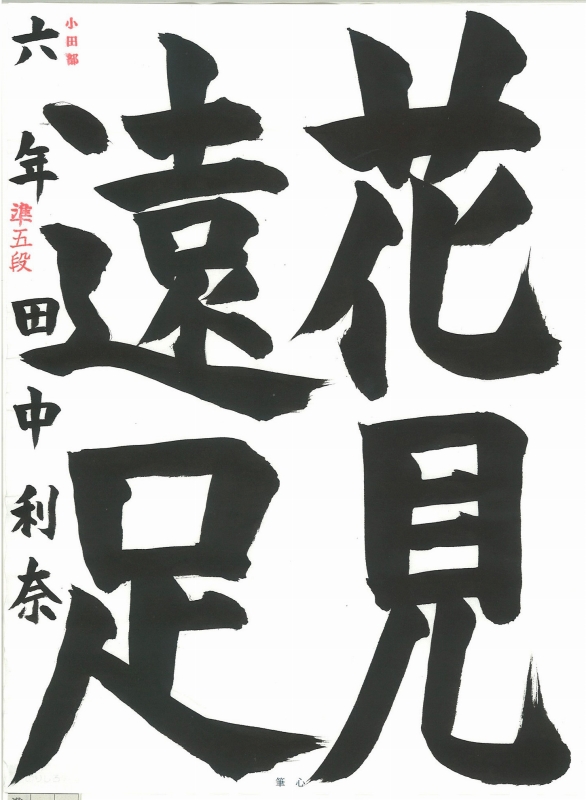 花見
遠足
六年 田中利奈
小田部
準五段
心筆